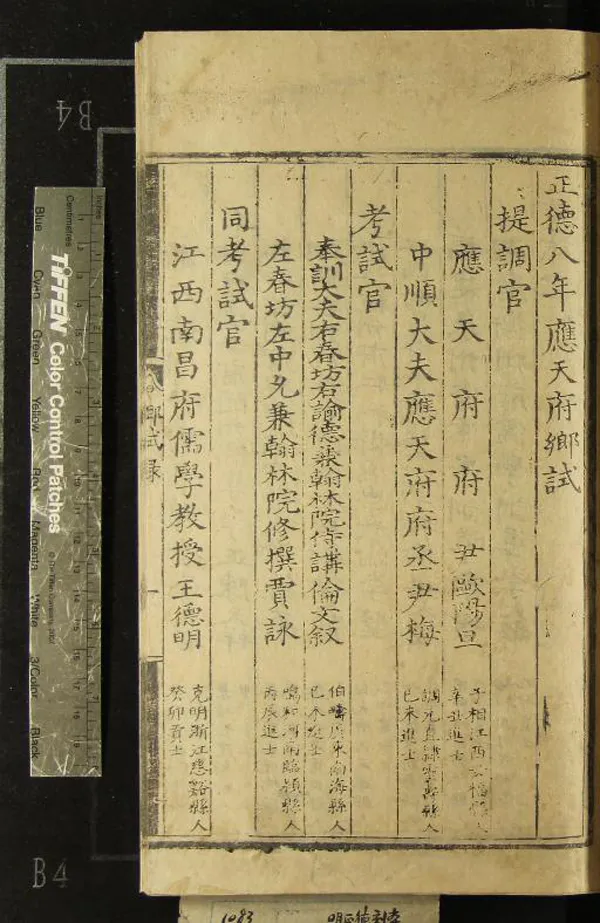 正德八年應天府鄉試
提調官
應天府府尹歐陽旦
子相江西安福縣人
辛丑進士
中順大夫應天府府丞尹梅
己未進士
考試官
奉訓大夫右春坊右諭德兼翰林院侍講倫文叙
伯疇廣東南海縣人
己未進士
左春坊左中允兼翰林院修撰賈詠
鳴和河南臨潁縣人
丙辰進士
同考試官
江西南昌府儒學教授王德明
克明浙江慈谿縣人
癸卯貢士
鄉試录
一
B4
B4
TIFFEN Color Control Patches
Inches
Centimetres
Blue
Cyan
Green
Yellow
Red
Magenta
White
3/Color
Black
1083
明正德刻本